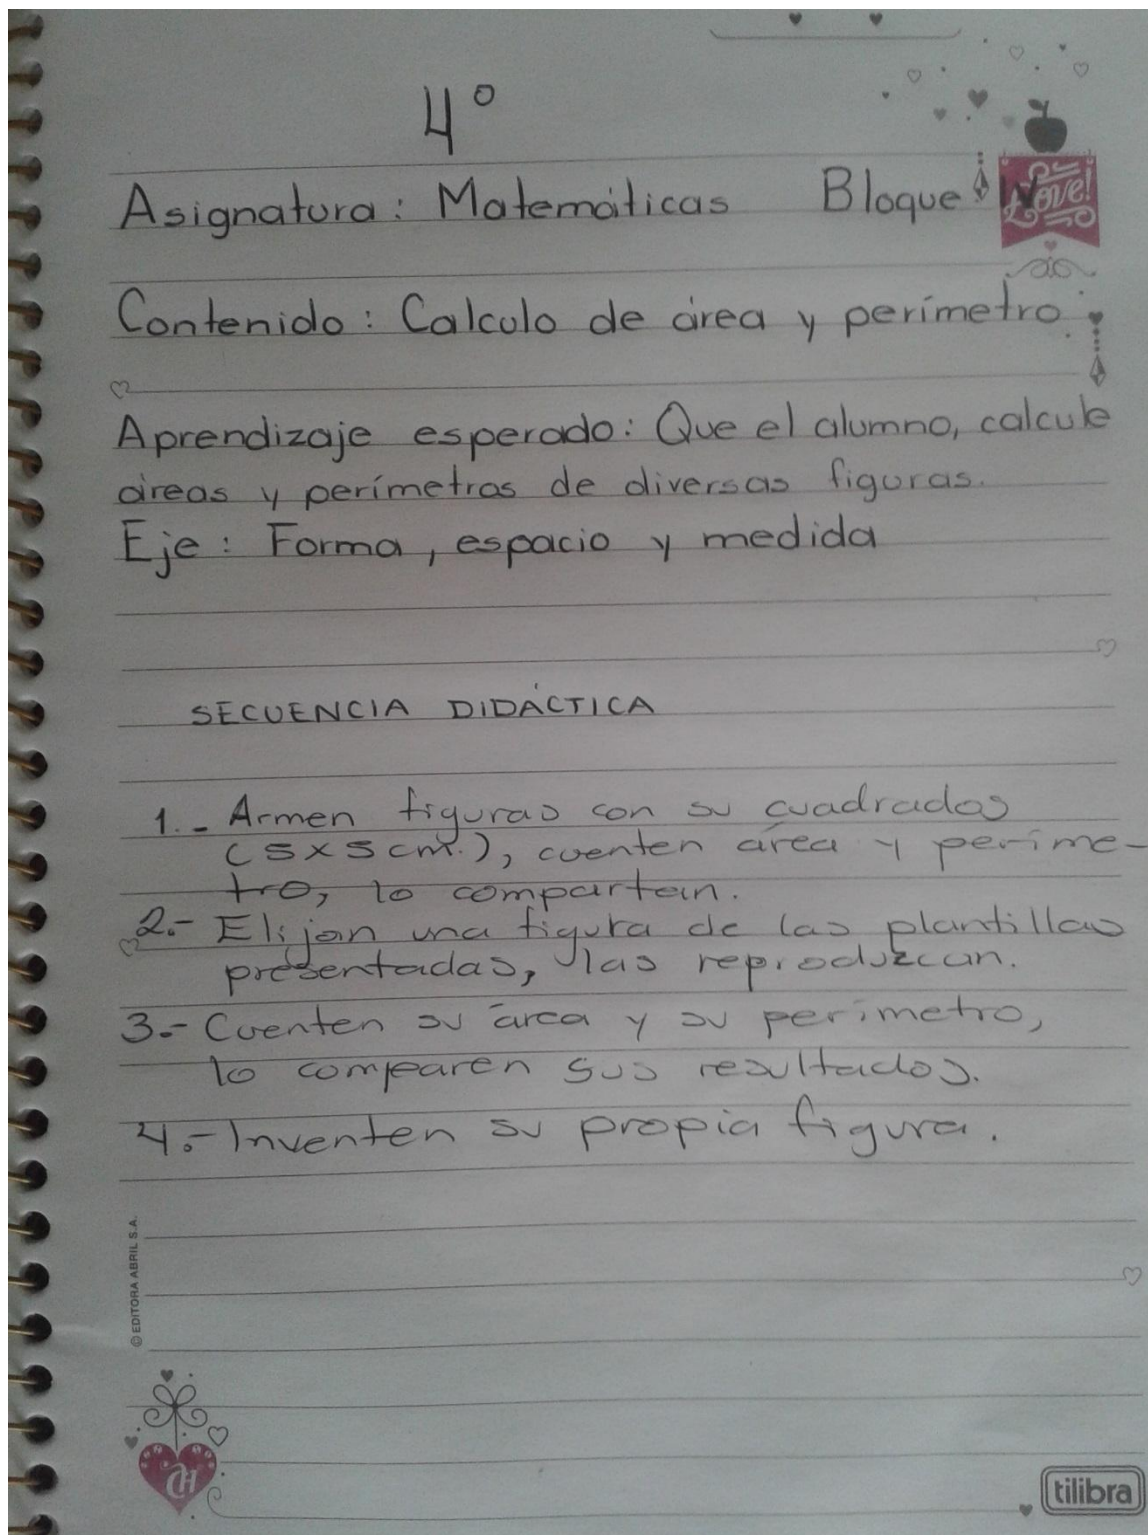 4°
Asignatura: Matemáticas Bloque IV
Love!
Contenido: Calculo de área y perímetro.
Aprendizaje esperado: Que el alumno, calcule
áreas y perímetros de diversas figuras.
Eje: Forma, espacio y medida
SECUENCIA DIDÁCTICA
1.- Armen figuras con su cuadrados
(5x5cm.), cuenten área y períme-
tro, lo compartan.
2.- Elijan una figura de las plantillas
presentadas, las reproduzcan.
3.- Cuenten su área y su perímetro,
lo comparen sus resultados.
4.- Inventen su propia figura.
© EDITORA ABRIL S.A.
tilibra